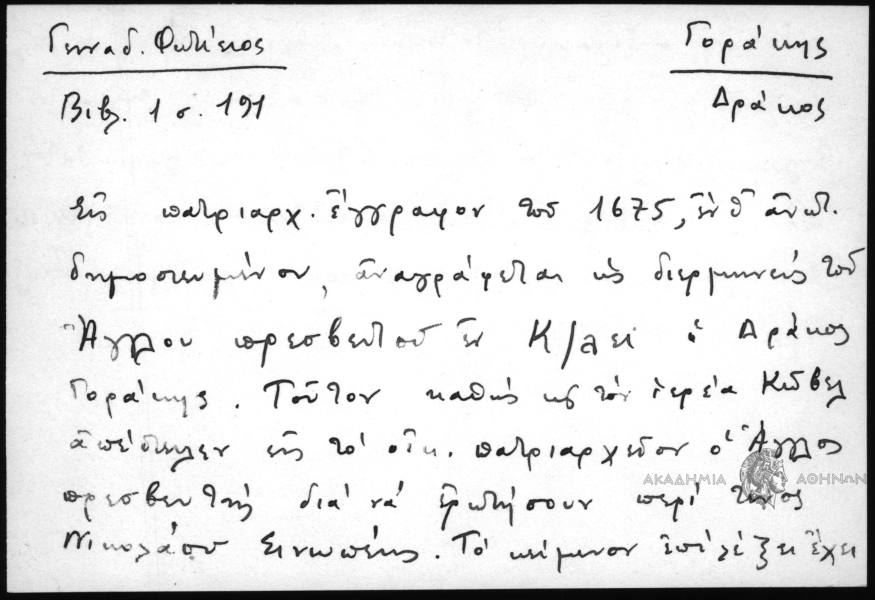 Γενναδ. Φωτίειος
Γοράκης
Βιβλ. 1 σ. 191
Δράκος
Εἰς πατριαρχ. ἔγγραφον τοῦ 1675, ἐνθ' ἀνωτ.
δημοσιευμένον, ἀναγράφεται ὡς διερμηνεύς τοῦ
Ἄγγλου πρεσβευτοῦ ἐν Κ/λει ὁ Δράκος
Γοράκης. Τοῦτον καθώς κ τόν ἱερέα Κῶβελ
ἀπέστειλεν εἰς τό οἰκ. πατριαρχεῖον ὁ Ἄγγλος
ΑΚΑΔΗΜΙΑ ΑΘΗΝΩΝ
πρεσβευτής διά νά ἐρωτήσουν περί τινος
Νικολάου Σινωπέως. Τό κείμενον ἐπί λέξει ἔχει